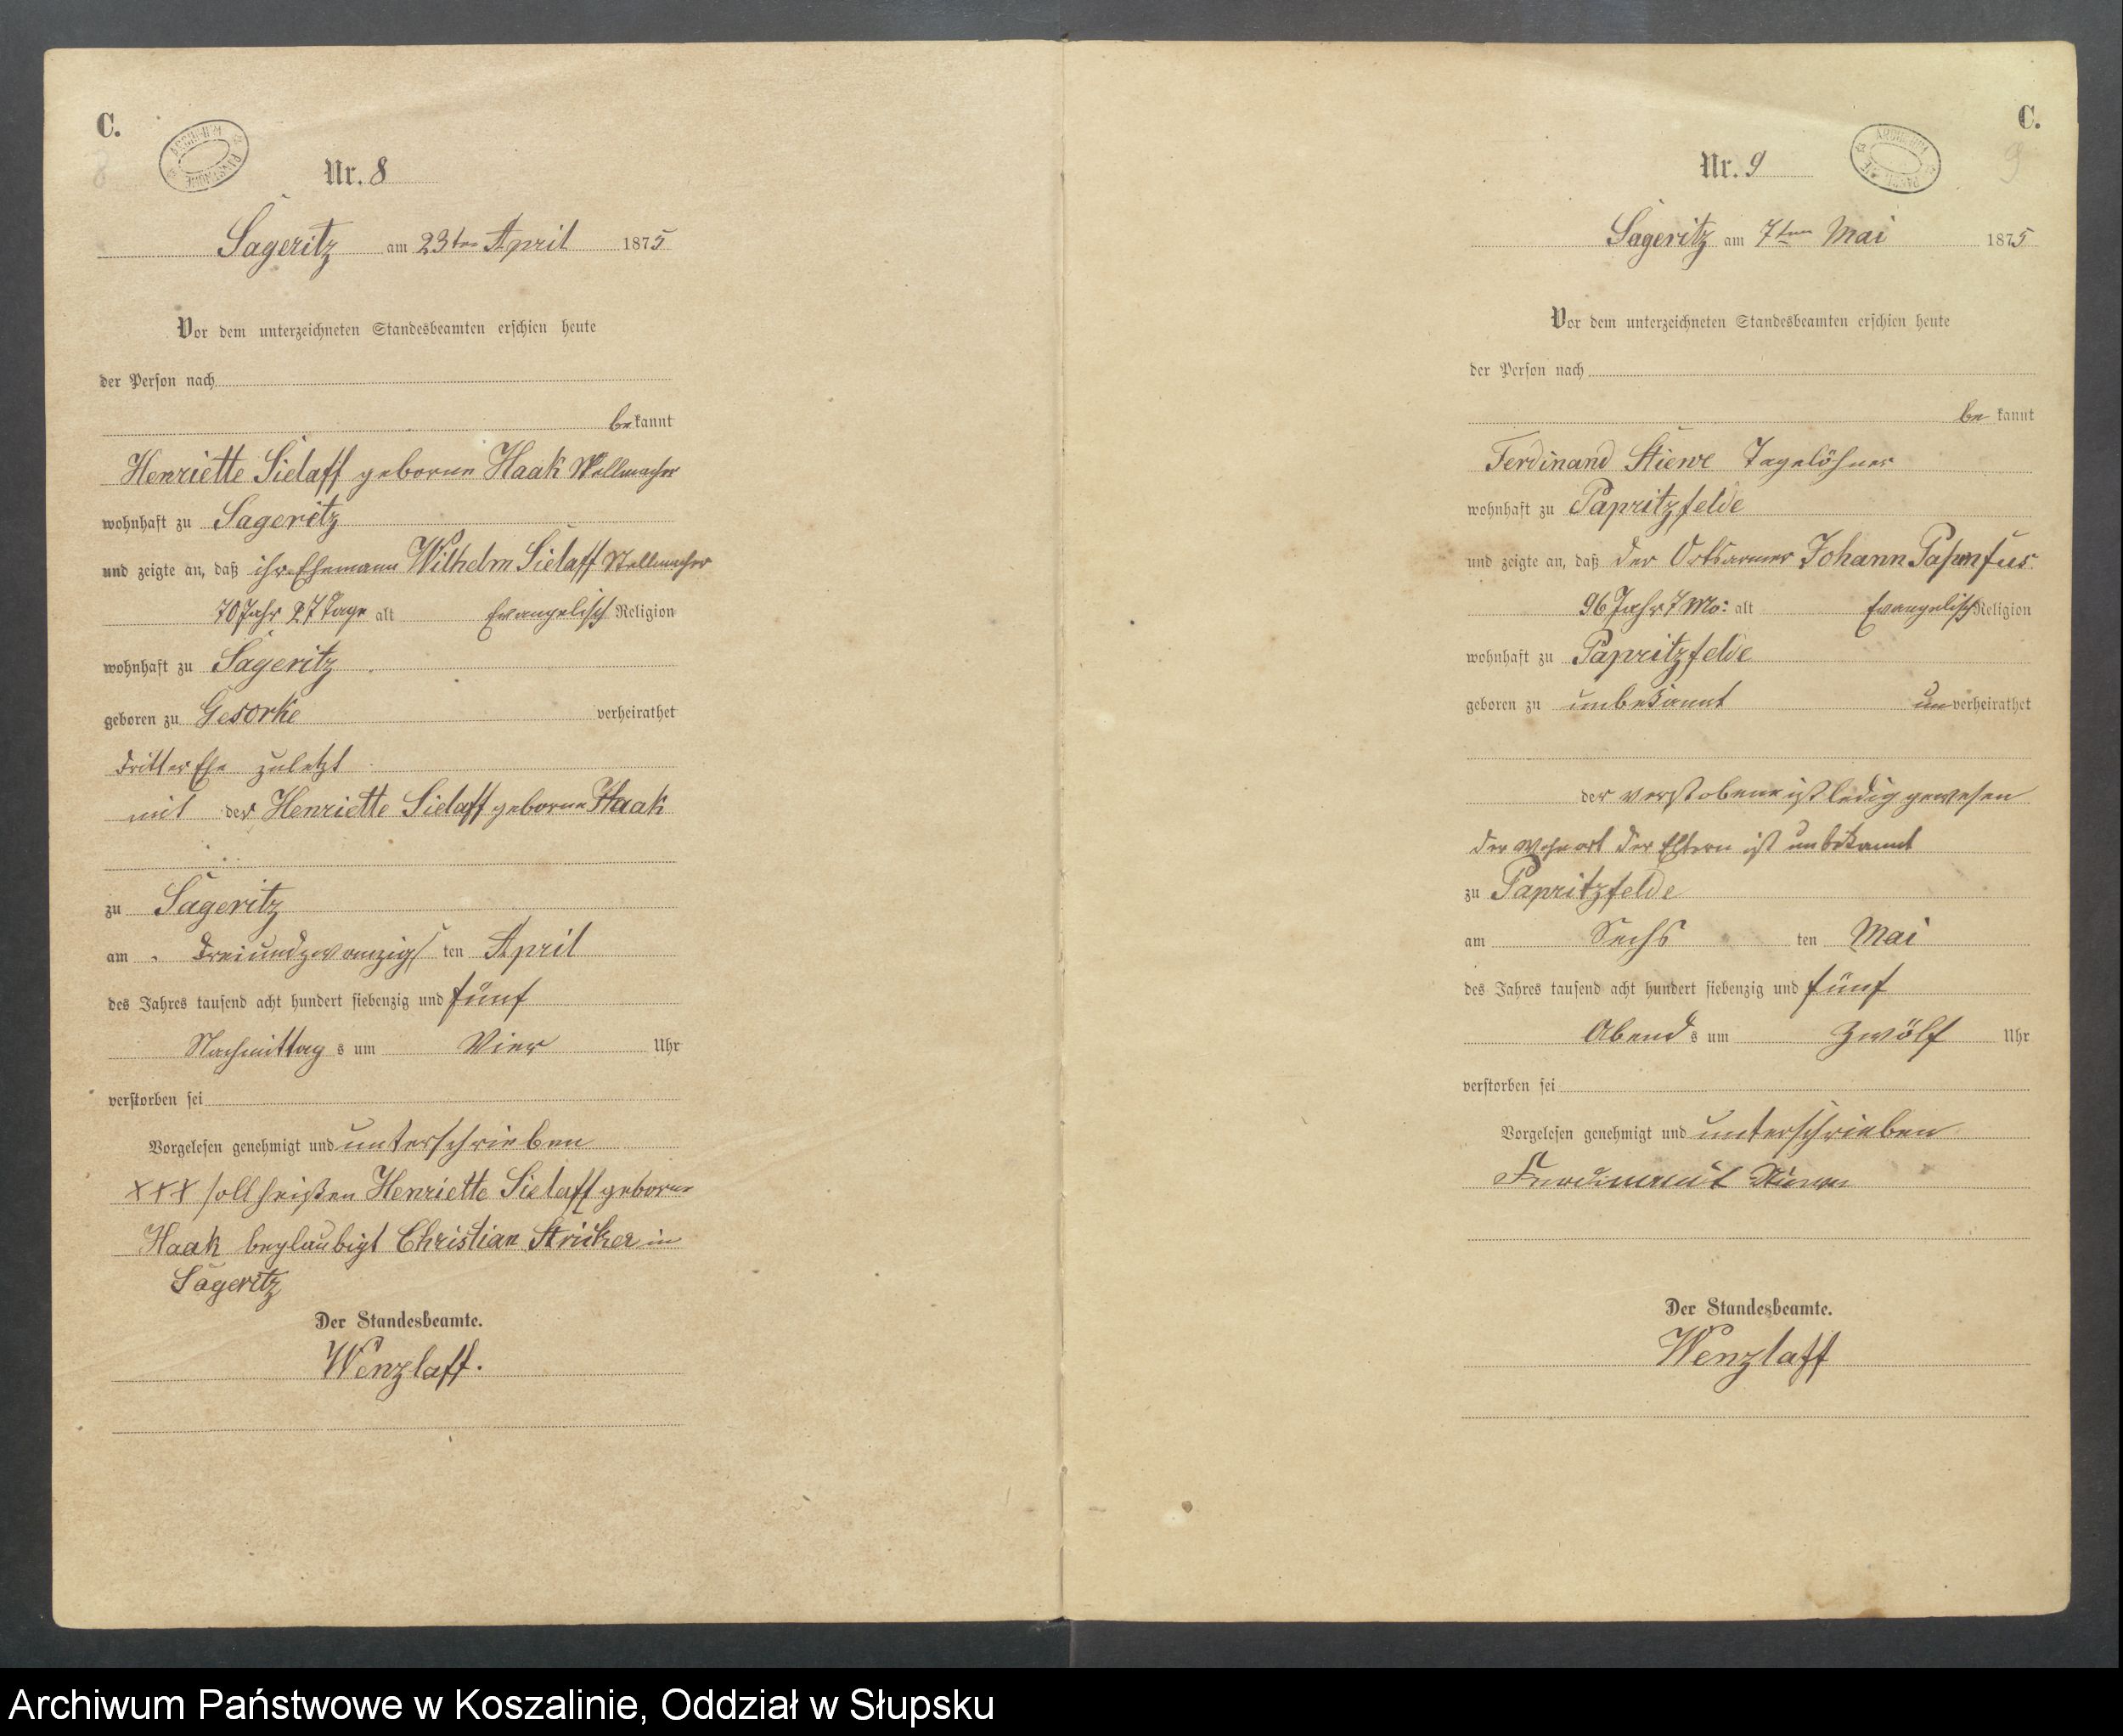 C.
ARCHIWUM PAŃSTWOWE
Nr. 8
Sageritz am 23ten April 1875
Vor dem unterzeichneten Standesbeamten erschien heute
der Person nach
bekannt
Henriette Sielaff geborne Haak Stellmacher
wohnhaft zu Sageritz
und zeigte an, daß ihr Ehemann Wilhelm Sielaff Stellmacher
70 Jahr 27 Tage alt Evangelisch Religion
wohnhaft zu Sageritz
geboren zu Gesorke verheirathet
dritter Ehe zuletzt
mit der Henriette Sielaff geborne Haak
zu Sageritz
am dreiundzwanzigsten April
des Jahres tausend acht hundert siebenzig und fünf
Nachmittags um Vier Uhr
verstorben sei
Vorgelesen genehmigt und unterschrieben
XXX soll heißen Henriette Sielaff geborne
Haak beglaubigt Christian Stricker in
Sageritz
Der Standesbeamte.
Wenzlaff.
C.
9
ARCHIWUM PAŃSTWOWE
Nr. 9
Sageritz am 7ten Mai 1875
Vor dem unterzeichneten Standesbeamten erschien heute
der Person nach
bekannt
Ferdinand Stiewe Tagelöhner
wohnhaft zu Papritzfelde
und zeigte an, daß der Ortsarmer Johann
96 Jahr 7 Mo: alt Evangelisch Religion
wohnhaft zu Papritzfelde
geboren zu unbekannt unverheirathet
der verstobene ist ledig gewesen
der Wohnort der Eltern ist unbekannt
zu Papritzfelde
am Sechsten Mai
des Jahres tausend acht hundert siebenzig und fünf
Abends um Zwölf Uhr
verstorben sei
Vorgelesen genehmigt und unterschrieben
Der Standesbeamte.
Wenzlaff
Archiwum Państwowe w Koszalinie, Oddział w Słupsku